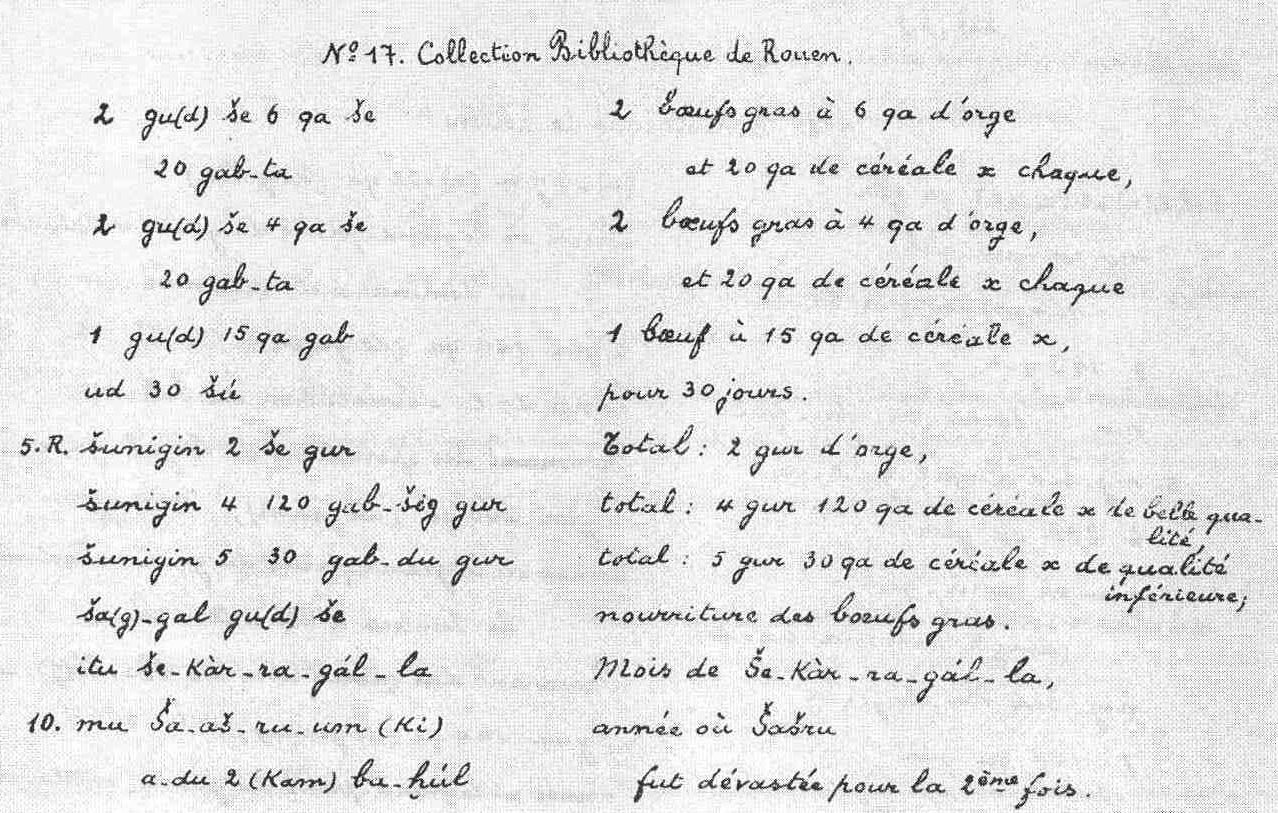 Nº 17. Collection Bibliothèque de Rouen.
2 gu(d) še 6 qa še 2 bœufs gras à 6 qa d'orge
20 gab-ta et 20 qa de céréale x chaque,
2 gu(d) še 4 qa še 2 bœufs gras à 4 qa d'orge,
20 gab-ta et 20 qa de céréale x chaque
1 gu(d) 15 qa gab 1 bœuf à 15 qa de céréale x,
ud 30 šú pour 30 jours.
5. R. šunigin 2 še gur Total : 2 gur d'orge,
šunigin 4 120 gab-šig gur total : 4 gur 120 qa de céréale x de belle qua-
lité,
šunigin 5 30 gab-du gur total : 5 gur 30 qa de céréale x de qualité
inférieure;
ša(g)-gal gu(d) še nourriture des bœufs gras.
itu še-kàr-ra-gál-la Mois de Še-kàr-ra-gál-la,
10. mu Ša-aš-ru-um (Ki) année où Šašru
a-du 2 (Kam) ba-ḫúl fut dévastée pour la 2ème fois.